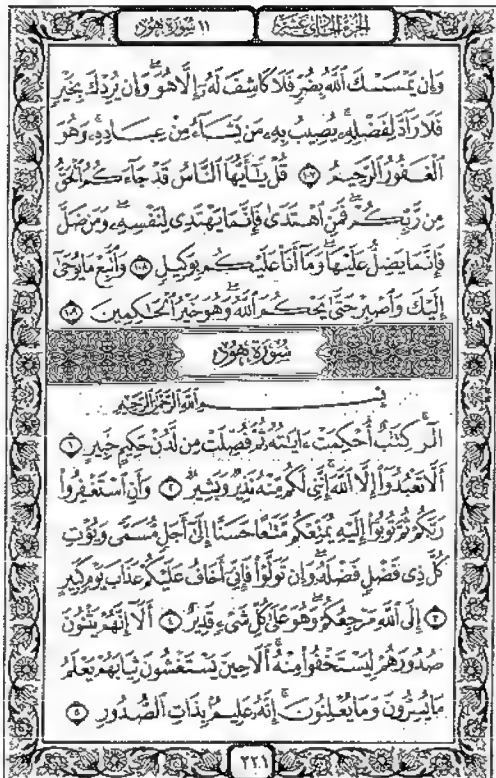 الجزء الحادي عشر
١١ سورة هود
وَإِن يَمْسَسْكَ ٱللَّهُ بِضُرٍّ فَلَا كَاشِفَ لَهُۥٓ إِلَّا هُوَ ۖ وَإِن يُرِدْكَ بِخَيْرٍ
فَلَا رَآدَّ لِفَضْلِهِۦ ۚ يُصِيبُ بِهِۦ مَن يَشَآءُ مِنْ عِبَادِهِۦ ۚ وَهُوَ
ٱلْغَفُورُ ٱلرَّحِيمُ ١٠٧ قُلْ يَـٰٓأَيُّهَا ٱلنَّاسُ قَدْ جَآءَكُمُ ٱلْحَقُّ
مِن رَّبِّكُمْ ۖ فَمَنِ ٱهْتَدَىٰ فَإِنَّمَا يَهْتَدِى لِنَفْسِهِۦ ۖ وَمَن ضَلَّ
فَإِنَّمَا يَضِلُّ عَلَيْهَا ۖ وَمَآ أَنَا۠ عَلَيْكُم بِوَكِيلٍ ١٠٨ وَٱتَّبِعْ مَا يُوحَىٰٓ
إِلَيْكَ وَٱصْبِرْ حَتَّىٰ يَحْكُمَ ٱللَّهُ ۚ وَهُوَ خَيْرُ ٱلْحَـٰكِمِينَ ١٠٩
سُورَةُ هُودٍ
بِسْمِ ٱللَّهِ ٱلرَّحْمَـٰنِ ٱلرَّحِيمِ
الٓر ۚ كِتَـٰبٌ أُحْكِمَتْ ءَايَـٰتُهُۥ ثُمَّ فُصِّلَتْ مِن لَّدُنْ حَكِيمٍ خَبِيرٍ ١
أَلَّا تَعْبُدُوٓا۟ إِلَّا ٱللَّهَ ۚ إِنَّنِى لَكُم مِّنْهُ نَذِيرٌ وَبَشِيرٌ ٢ وَأَنِ ٱسْتَغْفِرُوا۟
رَبَّكُمْ ثُمَّ تُوبُوٓا۟ إِلَيْهِ يُمَتِّعْكُم مَّتَـٰعًا حَسَنًا إِلَىٰٓ أَجَلٍ مُّسَمًّى وَيُؤْتِ
كُلَّ ذِى فَضْلٍ فَضْلَهُۥ ۖ وَإِن تَوَلَّوْا۟ فَإِنِّىٓ أَخَافُ عَلَيْكُمْ عَذَابَ يَوْمٍ كَبِيرٍ
٣ إِلَى ٱللَّهِ مَرْجِعُكُمْ ۖ وَهُوَ عَلَىٰ كُلِّ شَىْءٍ قَدِيرٌ ٤ أَلَآ إِنَّهُمْ يَثْنُونَ
صُدُورَهُمْ لِيَسْتَخْفُوا۟ مِنْهُ ۚ أَلَا حِينَ يَسْتَغْشُونَ ثِيَابَهُمْ يَعْلَمُ
مَا يُسِرُّونَ وَمَا يُعْلِنُونَ ۚ إِنَّهُۥ عَلِيمٌۢ بِذَاتِ ٱلصُّدُورِ ٥
٢٢١